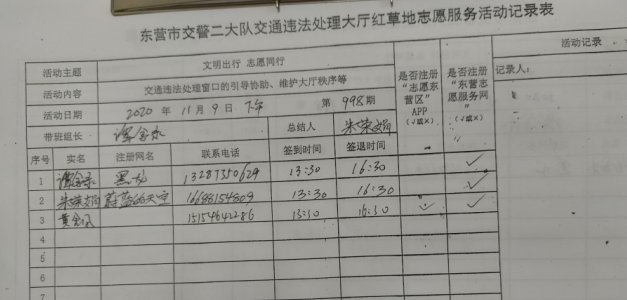 东营市交警二大队交通违法处理大厅红草地志愿服务活动记录表
活动主题 文明出行 志愿同行
活动记录
活动内容 交通违法处理窗口的引导协助、维护大厅秩序等
是否注册“志愿东营区”APP（√或×）
是否注册“东营志愿服务网”（√或×）
记录人：
活动日期 2020 年 11 月 9 日 下午 第 998 期
带班组长 总结人 朱荣娟
序号 实名 注册网名 联系电话 签到时间 签退时间
1 黑加 13287350629 13:30 16:30 ✓
2 朱荣娟 蔚蓝的天空 16688154809 13:30 16:30 ✓
3 黄金凤 15154641286 13:30 16:30 ✓ ✓
4
5
6
7